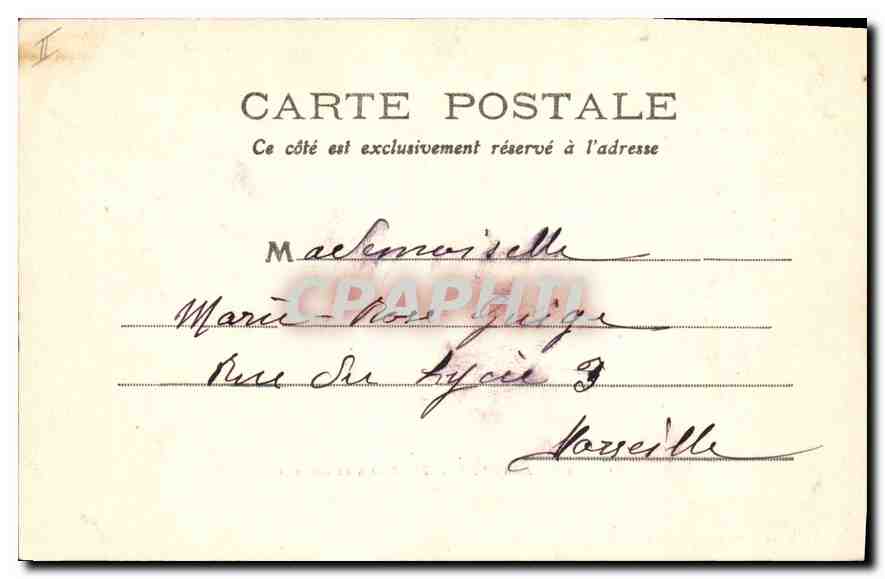 II
CARTE POSTALE
Ce côté est exclusivement réservé à l'adresse
Mademoiselle
CPAPHIL
Marie-Rose Guige
Rue du Lycée 3
Marseille